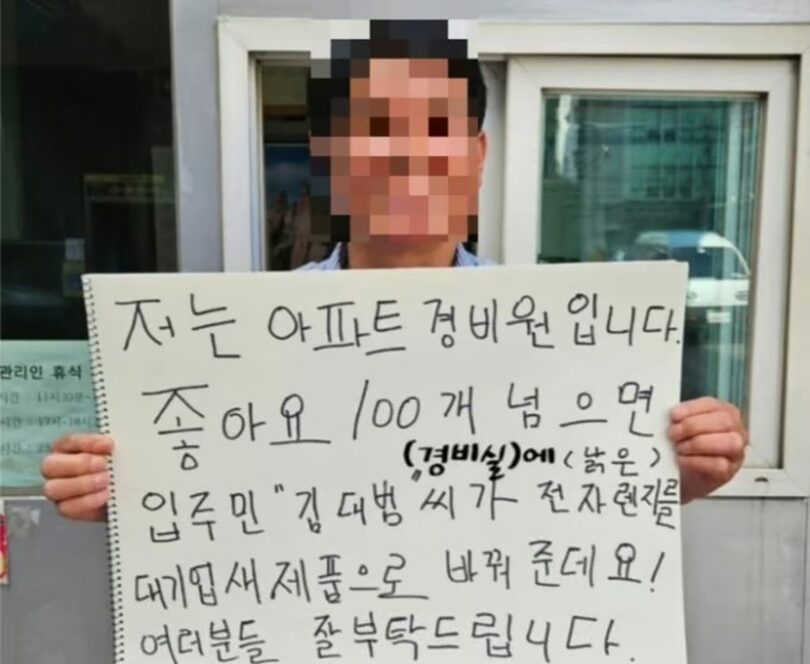 저는 아파트 경비원입니다.
좋아요 100개 넘으면
(경비실)에 (낡은)
입주민 "김대범"씨가 전자렌지를
대기업새제품으로 바꿔 준데요!
여러분들 잘부탁드립니다.
관리인 휴식